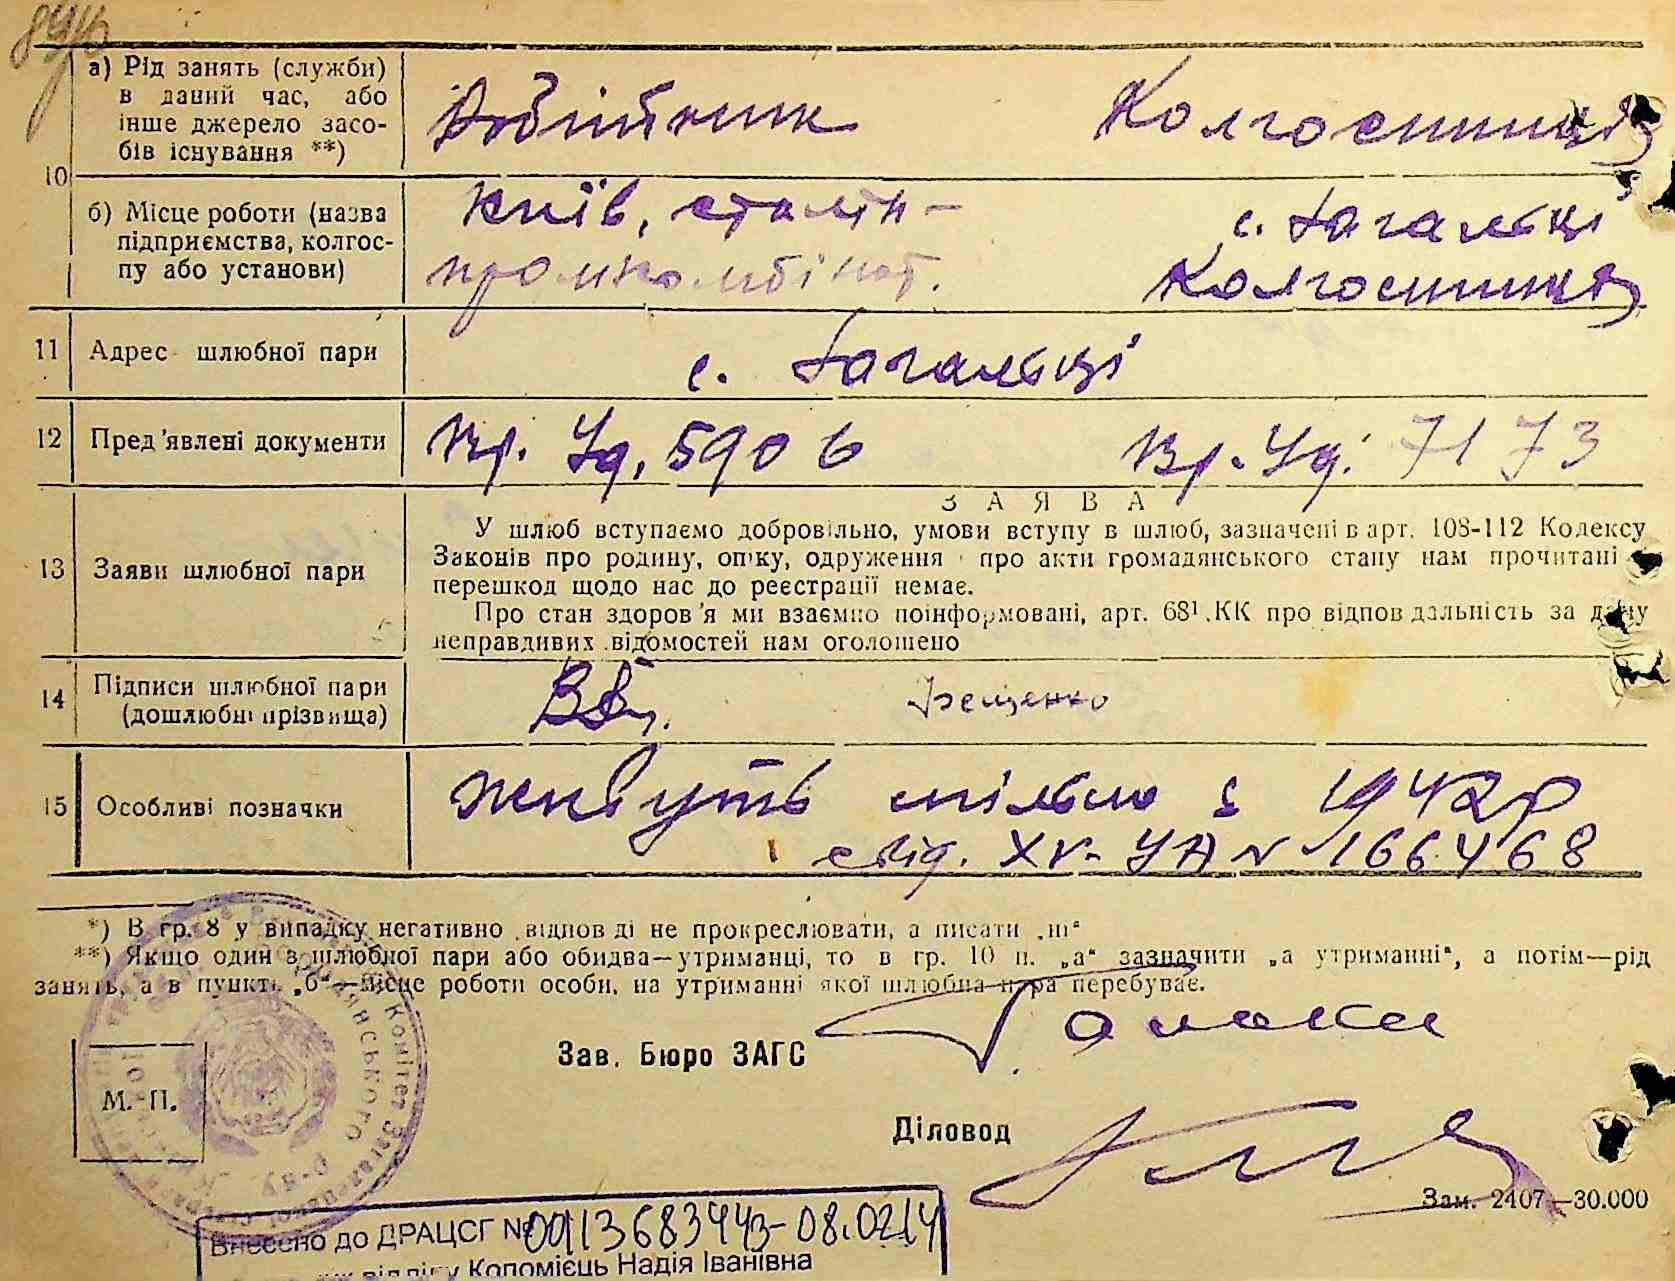 а) Рід занять (служби)
в даний час, або
інше джерело засо-
бів існування **)
Робітник Колгоспниця
10
б) Місце роботи (назва
підприємства, колгос-
пу або установи)
Київ, сталін-
промкомбінат.
с. Загальці
Колгоспниця
11 Адрес шлюбної пари
с. Загальці
12 Пред'явлені документи
Пр. Уд. 5906 Пр. Уд. 7173
ЗАЯВА
13 Заяви шлюбної пари
У шлюб вступаємо добровільно, умови вступу в шлюб, зазначені в арт. 108-112 Кодексу
Законів про родину, опіку, одруження і про акти громадянського стану нам прочитані
перешкод щодо нас до реєстрації немає.
Про стан здоров'я ми взаємно поінформовані, арт. 68¹ КК про відповідальність за дачу
неправдивих відомостей нам оголошено
14 Підписи шлюбної пари
(дошлюбні прізвища)
15 Особливі позначки
живуть спільно з 1942р
свід. XV-УА № 166468
*) В гр. 8 у випадку негативної відповіді не прокреслювати, а писати „ні“
**) Якщо один з шлюбної пари або обидва—утриманці, то в гр. 10 п. „а“ зазначити „а утриманні“, а потім—рід
занять, а в пункті „б“—місце роботи особи, на утриманні якої шлюбна пара перебуває.
Зав. Бюро ЗАГС
М. П.
Діловод
Зам. 2407—30.000
Внесено до ДРАЦСГ № 00113683443-08.02.14
відділу Коломієць Надія Іванівна